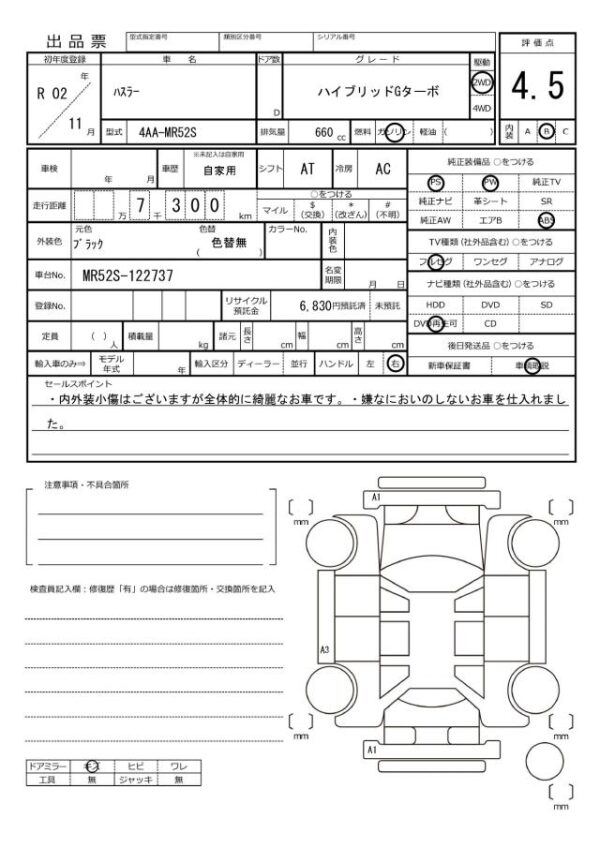 出品票
型式指定番号 類別区分番号 シリアル番号
評価点
4.5
初年度登録 車名 ドア数 グレード 駆動
R 02 年 11 月
ハスラー
D
ハイブリッドGターボ
2WD
4WD
型式 4AA-MR52S 排気量 660 cc 燃料 ガソリン 軽油 ( )
内装 A B C
車検 年 月 車歴 ※未記入は自家用 自家用 シフト AT 冷房 AC
走行距離 7 万 千 300 km
○をつける
マイル $(交換) *(改ざん) #(不明)
外装色 元色 ブラック 色替 色替無 ( ) カラーNo. 内装色
車台No. MR52S-122737 名変期限 月 日
登録No. リサイクル預託金 6,830円預託済 未預託
定員 ( )人 積載量 kg 諸元 長さ cm 幅 cm 高さ cm
輸入車のみ⇒ モデル年式 年 輸入区分 ディーラー 並行 ハンドル 左 右
純正装備品 ○をつける
PS PW 純正TV
純正ナビ 革シート SR
純正AW エアB ABS
TV種類 (社外品含む) ○をつける
フルセグ ワンセグ アナログ
ナビ種類 (社外品含む) ○をつける
HDD DVD SD
DVD再生可 CD
後日発送品 ○をつける
新車保証書 車輌取説
セールスポイント
・内外装小傷はございますが全体的に綺麗なお車です。・嫌なにおいのしないお車を仕入れまし
た。
注意事項・不具合箇所
検査員記入欄:修復歴「有」の場合は修復箇所・交換箇所を記入
ドアミラー キズ ヒビ ワレ
工具 無 ジャッキ 無
A1
[ ] mm
[ ] mm
A3
[ ] mm
[ ] mm
A1
[ ] mm